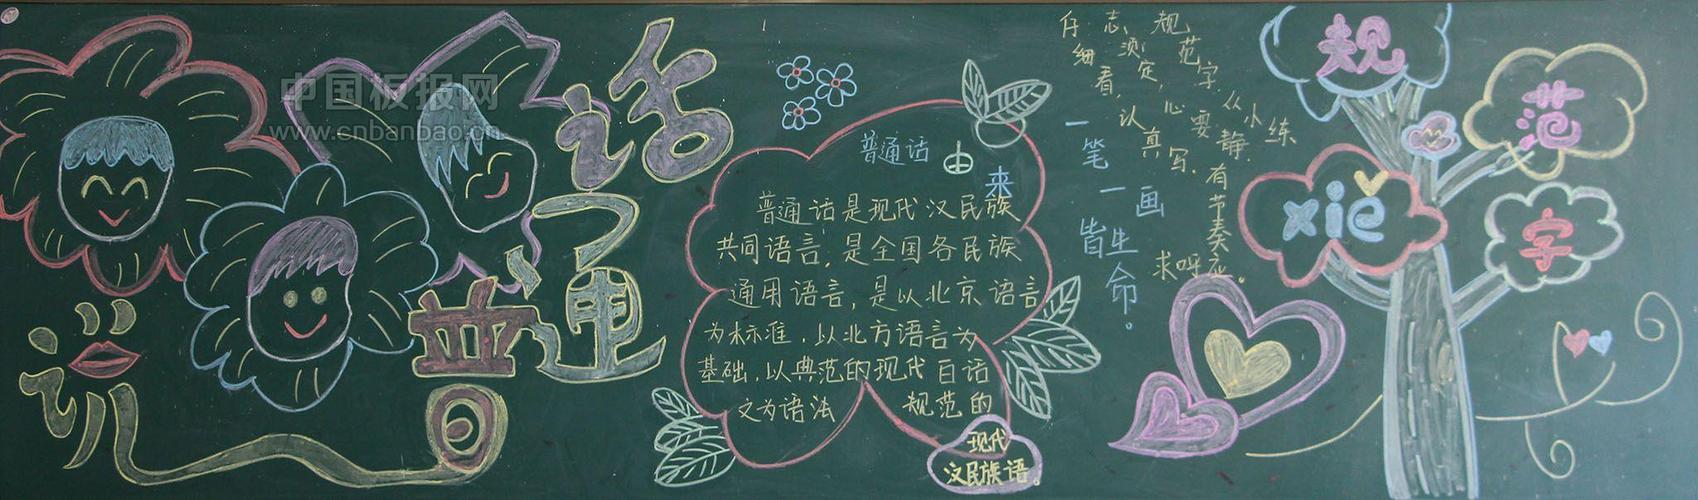 中国板报网
www.cnbanbao.cn
说普通话
普通话由来
普通话是现代汉民族
共同语言,是全国各民族
通用语言,是以北京语言
为标准,以北方语言为
基础,以典范的现代白话
文为语法 规范的
现代
汉民族语。
规范字,从小练
志须定,心要静.
仔细看,认真写.
有节奏
求呼应。
一笔一画
皆生命。
规
范
xiě
字